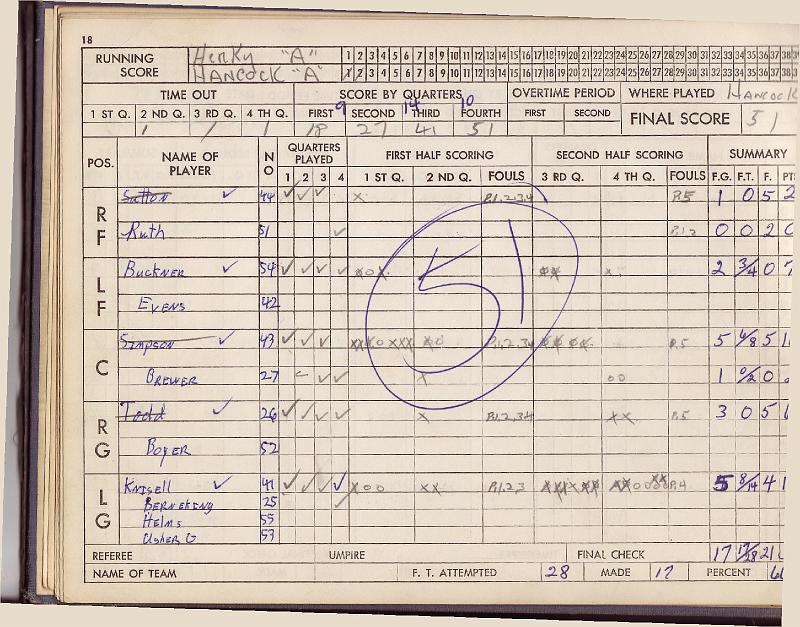 18
RUNNING SCORE
Herky "A"
HANCOCK "A"
1 2 3 4 5 6 7 8 9 10 11 12 13 14 15 16 17 18 19 20 21 22 23 24 25 26 27 28 29 30 31 32 33 34 35 36 37 38
1 2 3 4 5 6 7 8 9 10 11 12 13 14 15 16 17 18 19 20 21 22 23 24 25 26 27 28 29 30 31 32 33 34 35 36 37 38
TIME OUT SCORE BY QUARTERS OVERTIME PERIOD WHERE PLAYED HANCOCK
9 14 10
1 ST Q. 2 ND Q. 3 RD Q. 4 TH Q. FIRST SECOND THIRD FOURTH FIRST SECOND FINAL SCORE 51
1 1 1 18 27 41 51
POS. NAME OF PLAYER NO QUARTERS PLAYED FIRST HALF SCORING SECOND HALF SCORING SUMMARY
1 2 3 4 1 ST Q. 2 ND Q. FOULS 3 RD Q. 4 TH Q. FOULS F.G. F.T. F. PTS
RF Sutton ✓ 44 ✓ ✓ ✓ x P.1,2,3,4 P.5 1 0 5 2
Ruth 51 ✓ P.1,2 0 0 2 0
LF BUCKNER ✓ 54 ✓ ✓ ✓ ✓ 2 3/4 0 7
EVENS 42
51
C SIMPSON ✓ 43 ✓ ✓ ✓ P.1,2,3,4 P.5 5 6/8 5
BREWER 27 ✓ ✓ x 0 0 1 0/2 0
RG Todd ✓ 26 ✓ ✓ ✓ ✓ x P.1,2,3,4 x x P.5 3 0 5
BOYER 52
LG KNISELL ✓ 41 ✓ ✓ ✓ ✓ x 0 0 x x P.1,2,3 P.4 5 8/14 4
BERNEKING 25 ✓
HELMS 55
USHER G 53
REFEREE UMPIRE FINAL CHECK 17 17/28 21
NAME OF TEAM F. T. ATTEMPTED 28 MADE 17 PERCENT